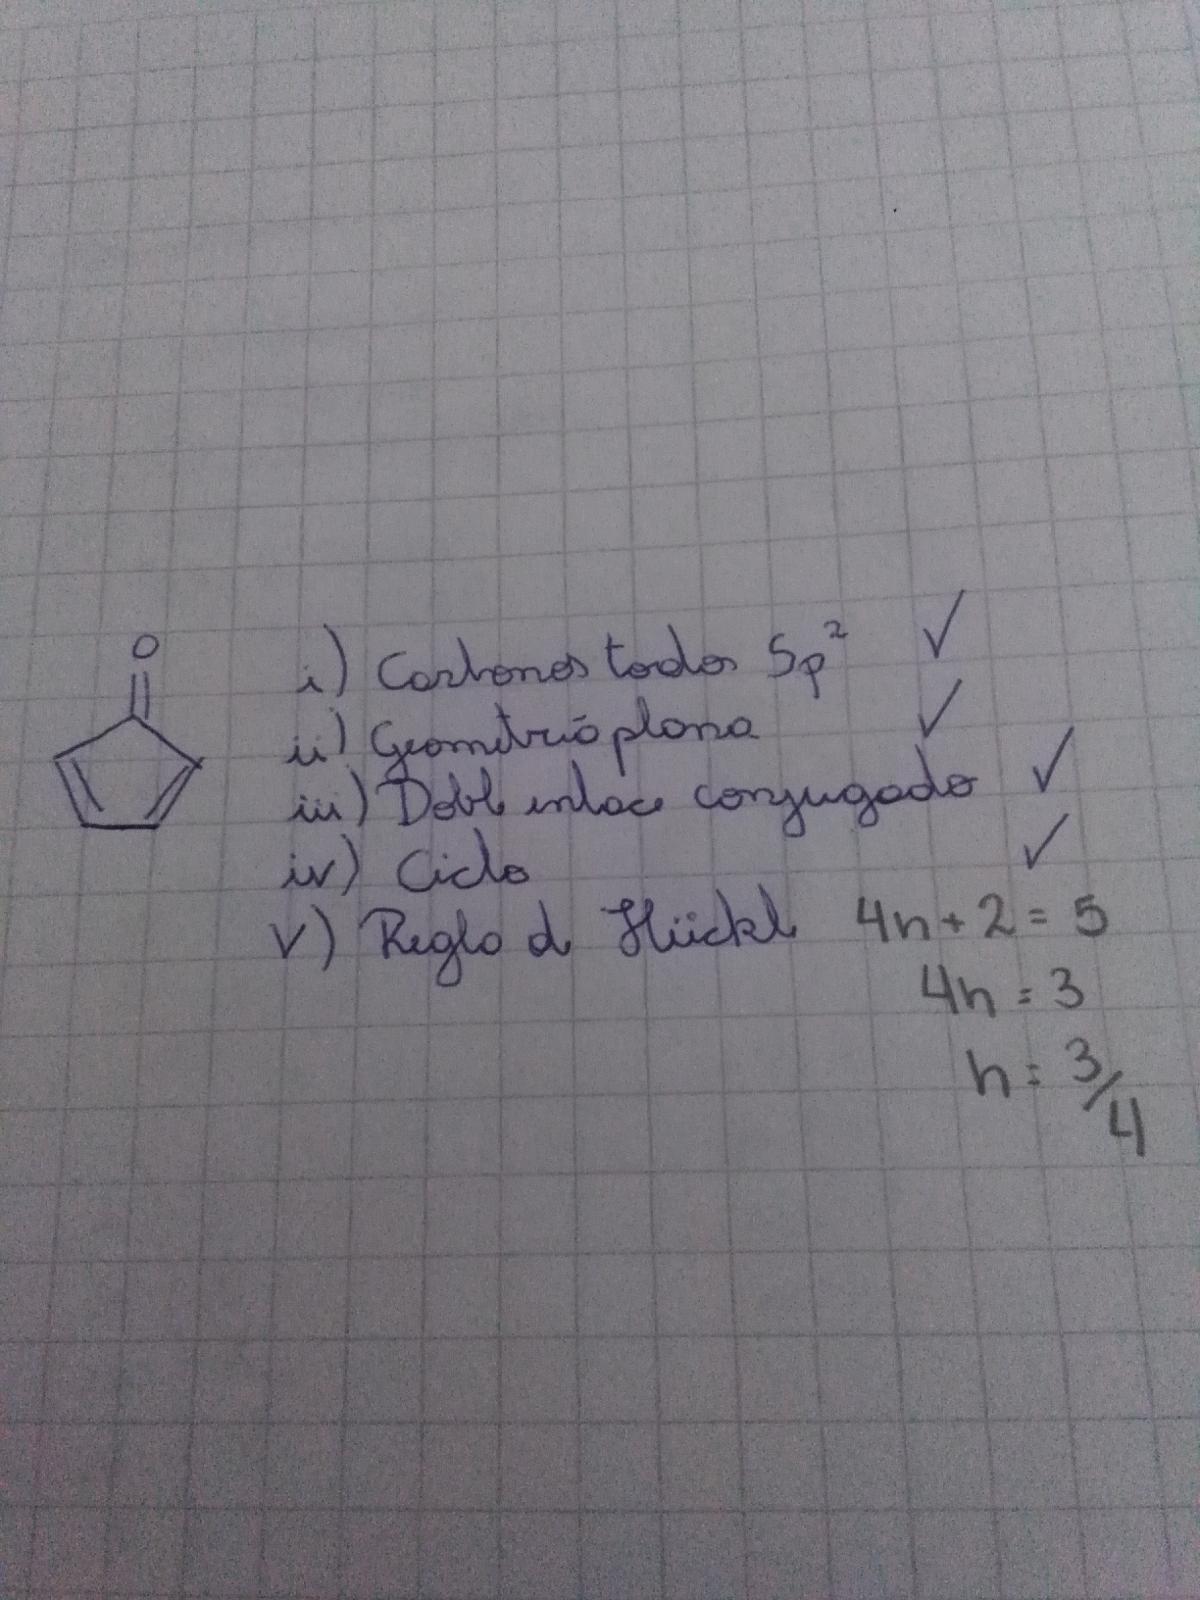 O
i) Carbonos todos Sp² ✓
ii) Geometría plana ✓
iii) Dobl enlace conjugado ✓
iv) Ciclo ✓
V) Regla de Hückl 4n + 2 = 5
4n = 3
n = 3/4